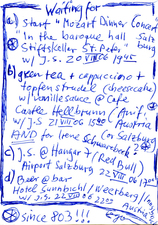 Waiting for
a) start * Mozart Dinner Concert
"in the baroque hall Salz
Stiftskeller St. Peter" burg
w/J.S. 20 VIII 06 1945
b) green tea + cappuccino +
topfenstrudel (cheesecake)
w/ vanillesauce @ Cafe
Castle Hellbrunn / Anif /
w/J.S. 21 VIII 06 Austria
AND for Irene Schwarzbock
c) J.S. @ Hangar 7 / Red Bull
Airport Salzburg 22 VIII 06
d) Beer @ bar
Hotel Sunnbichl / Weerberg /
w/J.S. 22 VIII 06 Austria
* since 803!!!